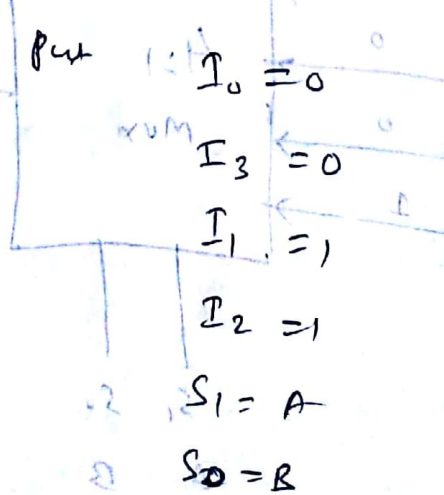 Put
I₀ = 0
I₃ = 0
I₁ = 1
I₂ = 1
S₁ = A
S₀ = B